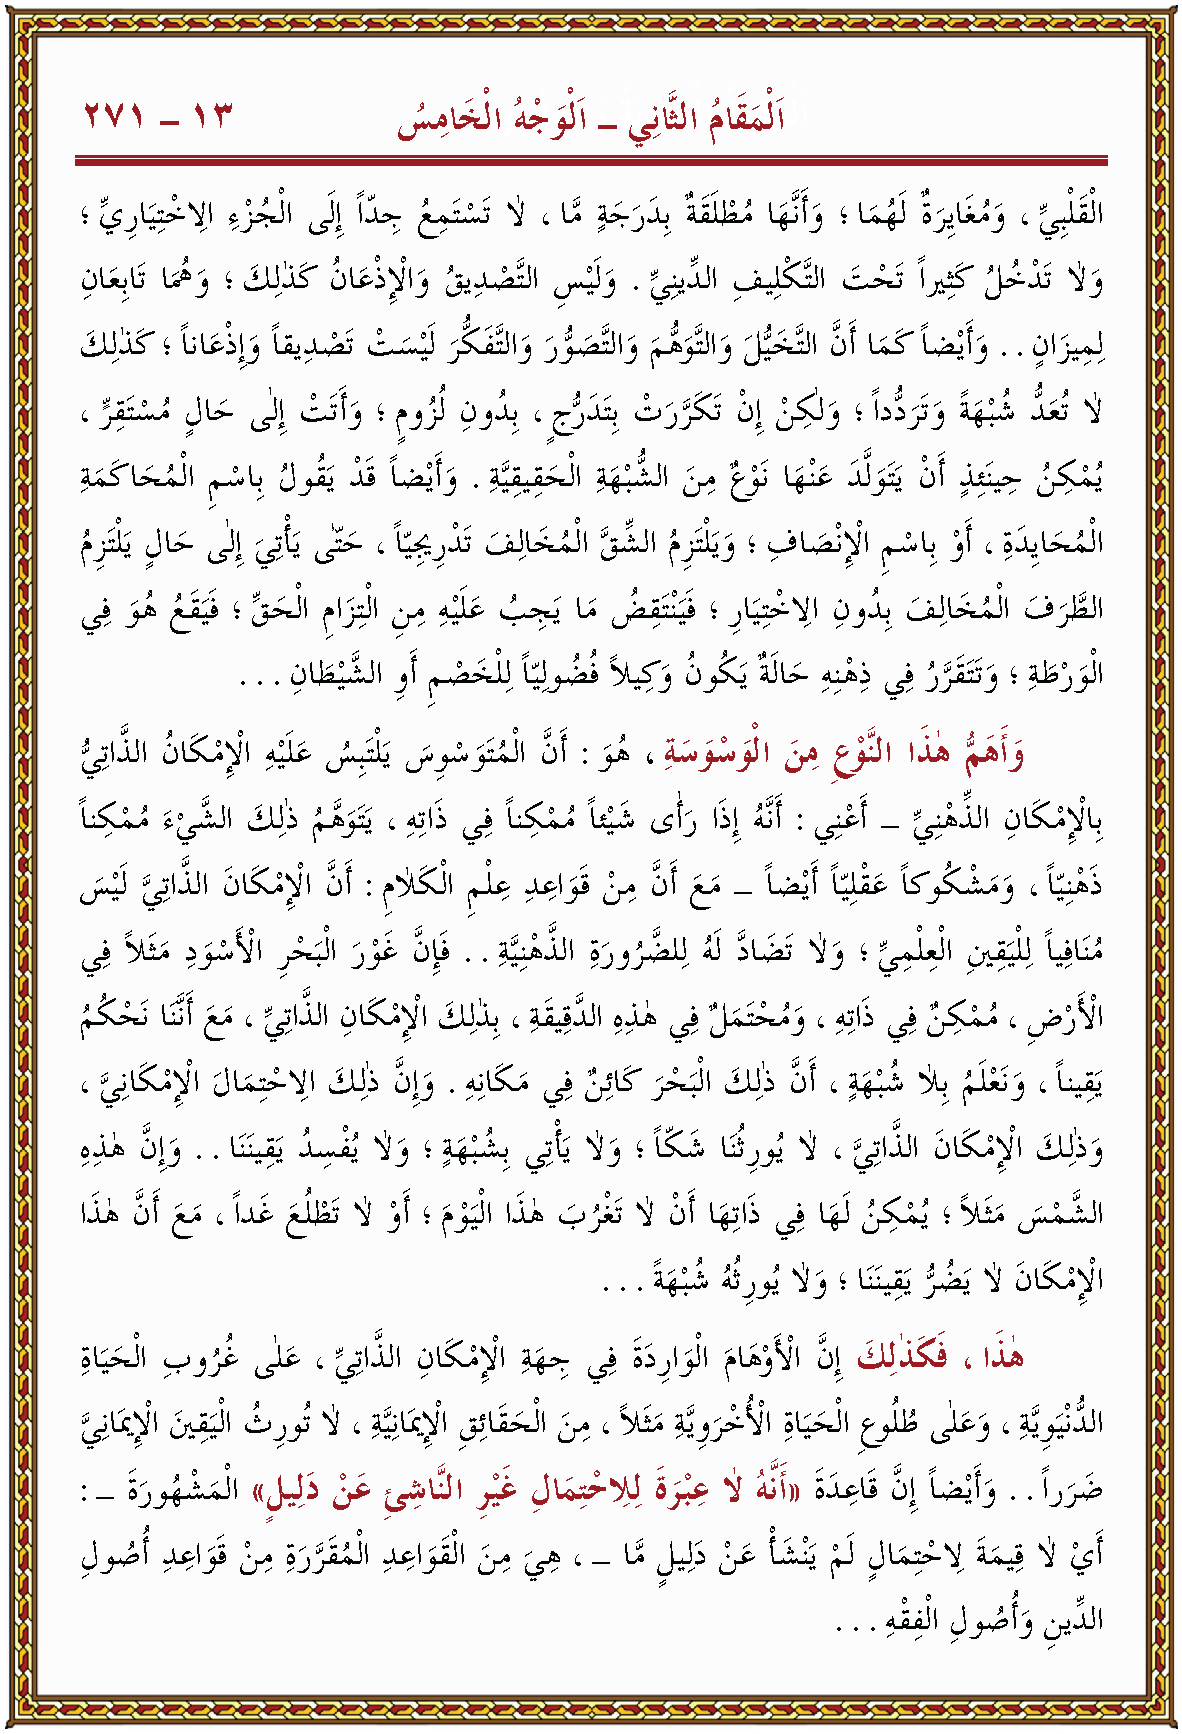 اَلْمَقَامُ الثَّانِي ــ اَلْوَجْهُ الْخَامِسُ ١٣ ــ ٢٧١
الْقَلْبِيِّ ، وَمُغَايِرَةٌ لَهُمَا ؛ وَأَنَّهَا مُطْلَقَةٌ بِدَرَجَةٍ مَّا ، لاٰ تَسْتَمِعُ جِدّاً إِلَى الْجُزْءِ الاِخْتِيَارِيِّ ؛
وَلاٰ تَدْخُلُ كَثِيراً تَحْتَ التَّكْلِيفِ الدِّينِيِّ . وَلَيْسِ التَّصْدِيقُ وَالْإِذْعَانُ كَذٰلِكَ ؛ وَهُمَا تَابِعَانِ
لِمِيزَانٍ . . وَأَيْضاً كَمَا أَنَّ التَّخَيُّلَ وَالتَّوَهُّمَ وَالتَّصَوُّرَ وَالتَّفَكُّرَ لَيْسَتْ تَصْدِيقاً وَإِذْعَاناً ؛ كَذٰلِكَ
لاٰ تُعَدُّ شُبْهَةً وَتَرَدُّداً ؛ وَلٰكِنْ إِنْ تَكَرَّرَتْ بِتَدَرُّجٍ ، بِدُونِ لُزُومٍ ؛ وَأَتَتْ إِلٰى حَالٍ مُسْتَقِرٍّ ،
يُمْكِنُ حِينَئِذٍ أَنْ يَتَوَلَّدَ عَنْهَا نَوْعٌ مِنَ الشُّبْهَةِ الْحَقِيقِيَّةِ . وَأَيْضاً قَدْ يَقُولُ بِاسْمِ الْمُحَاكَمَةِ
الْمُحَايِدَةِ ، أَوْ بِاسْمِ الْإِنْصَافِ ؛ وَيَلْتَزِمُ الشِّقَّ الْمُخَالِفَ تَدْرِيجِيّاً ، حَتّٰى يَأْتِيَ إِلٰى حَالٍ يَلْتَزِمُ
الطَّرَفَ الْمُخَالِفَ بِدُونِ الاِخْتِيَارِ ؛ فَيَنْتَقِضُ مَا يَجِبُ عَلَيْهِ مِنِ الْتِزَامِ الْحَقِّ ؛ فَيَقَعُ هُوَ فِي
الْوَرْطَةِ ؛ وَتَتَقَرَّرُ فِي ذِهْنِهِ حَالَةٌ يَكُونُ وَكِيلاً فُضُولِيّاً لِلْخَصْمِ أَوِ الشَّيْطَانِ . . .
وَأَهَمُّ هٰذَا النَّوْعِ مِنَ الْوَسْوَسَةِ ، هُوَ : أَنَّ الْمُتَوَسْوِسَ يَلْتَبِسُ عَلَيْهِ الْإِمْكَانُ الذَّاتِيُّ
بِالْإِمْكَانِ الذِّهْنِيِّ ــ أَعْنِي : أَنَّهُ إِذَا رَأٰى شَيْئاً مُمْكِناً فِي ذَاتِهِ ، يَتَوَهَّمُ ذٰلِكَ الشَّيْءَ مُمْكِناً
ذَهْنِيّاً ، وَمَشْكُوكاً عَقْلِيّاً أَيْضاً ــ مَعَ أَنَّ مِنْ قَوَاعِدِ عِلْمِ الْكَلاٰمِ : أَنَّ الْإِمْكَانَ الذَّاتِيَّ لَيْسَ
مُنَافِياً لِلْيَقِينِ الْعِلْمِيِّ ؛ وَلاٰ تَضَادَّ لَهُ لِلضَّرُورَةِ الذَّهْنِيَّةِ . . فَإِنَّ غَوْرَ الْبَحْرِ الْأَسْوَدِ مَثَلاً فِي
الْأَرْضِ ، مُمْكِنٌ فِي ذَاتِهِ ، وَمُحْتَمَلٌ فِي هٰذِهِ الدَّقِيقَةِ ، بِذٰلِكَ الْإِمْكَانِ الذَّاتِيِّ ، مَعَ أَنَّنَا نَحْكُمُ
يَقِيناً ، وَنَعْلَمُ بِلاٰ شُبْهَةٍ ، أَنَّ ذٰلِكَ الْبَحْرَ كَائِنٌ فِي مَكَانِهِ . وَإِنَّ ذٰلِكَ الاِحْتِمَالَ الْإِمْكَانِيَّ ،
وَذٰلِكَ الْإِمْكَانَ الذَّاتِيَّ ، لاٰ يُورِثُنَا شَكّاً ؛ وَلاٰ يَأْتِي بِشُبْهَةٍ ؛ وَلاٰ يُفْسِدُ يَقِينَنَا . . وَإِنَّ هٰذِهِ
الشَّمْسَ مَثَلاً ؛ يُمْكِنُ لَهَا فِي ذَاتِهَا أَنْ لاٰ تَغْرُبَ هٰذَا الْيَوْمَ ؛ أَوْ لاٰ تَطْلُعَ غَداً ، مَعَ أَنَّ هٰذَا
الْإِمْكَانَ لاٰ يَضُرُّ يَقِينَنَا ؛ وَلاٰ يُورِثُهُ شُبْهَةً . . .
هٰذَا ، فَكَذٰلِكَ إِنَّ الْأَوْهَامَ الْوَارِدَةَ فِي جِهَةِ الْإِمْكَانِ الذَّاتِيِّ ، عَلٰى غُرُوبِ الْحَيَاةِ
الدُّنْيَوِيَّةِ ، وَعَلٰى طُلُوعِ الْحَيَاةِ الْأُخْرَوِيَّةِ مَثَلاً ، مِنَ الْحَقَائِقِ الْإِيمَانِيَّةِ ، لاٰ تُورِثُ الْيَقِينَ الْإِيمَانِيَّ
ضَرَراً . . وَأَيْضاً إِنَّ قَاعِدَةَ «أَنَّهُ لاٰ عِبْرَةَ لِلاِحْتِمَالِ غَيْرِ النَّاشِئِ عَنْ دَلِيلٍ» الْمَشْهُورَةَ ــ :
أَيْ لاٰ قِيمَةَ لاِحْتِمَالٍ لَمْ يَنْشَأْ عَنْ دَلِيلٍ مَّا ــ ، هِيَ مِنَ الْقَوَاعِدِ الْمُقَرَّرَةِ مِنْ قَوَاعِدِ أُصُولِ
الدِّينِ وَأُصُولِ الْفِقْهِ . . .